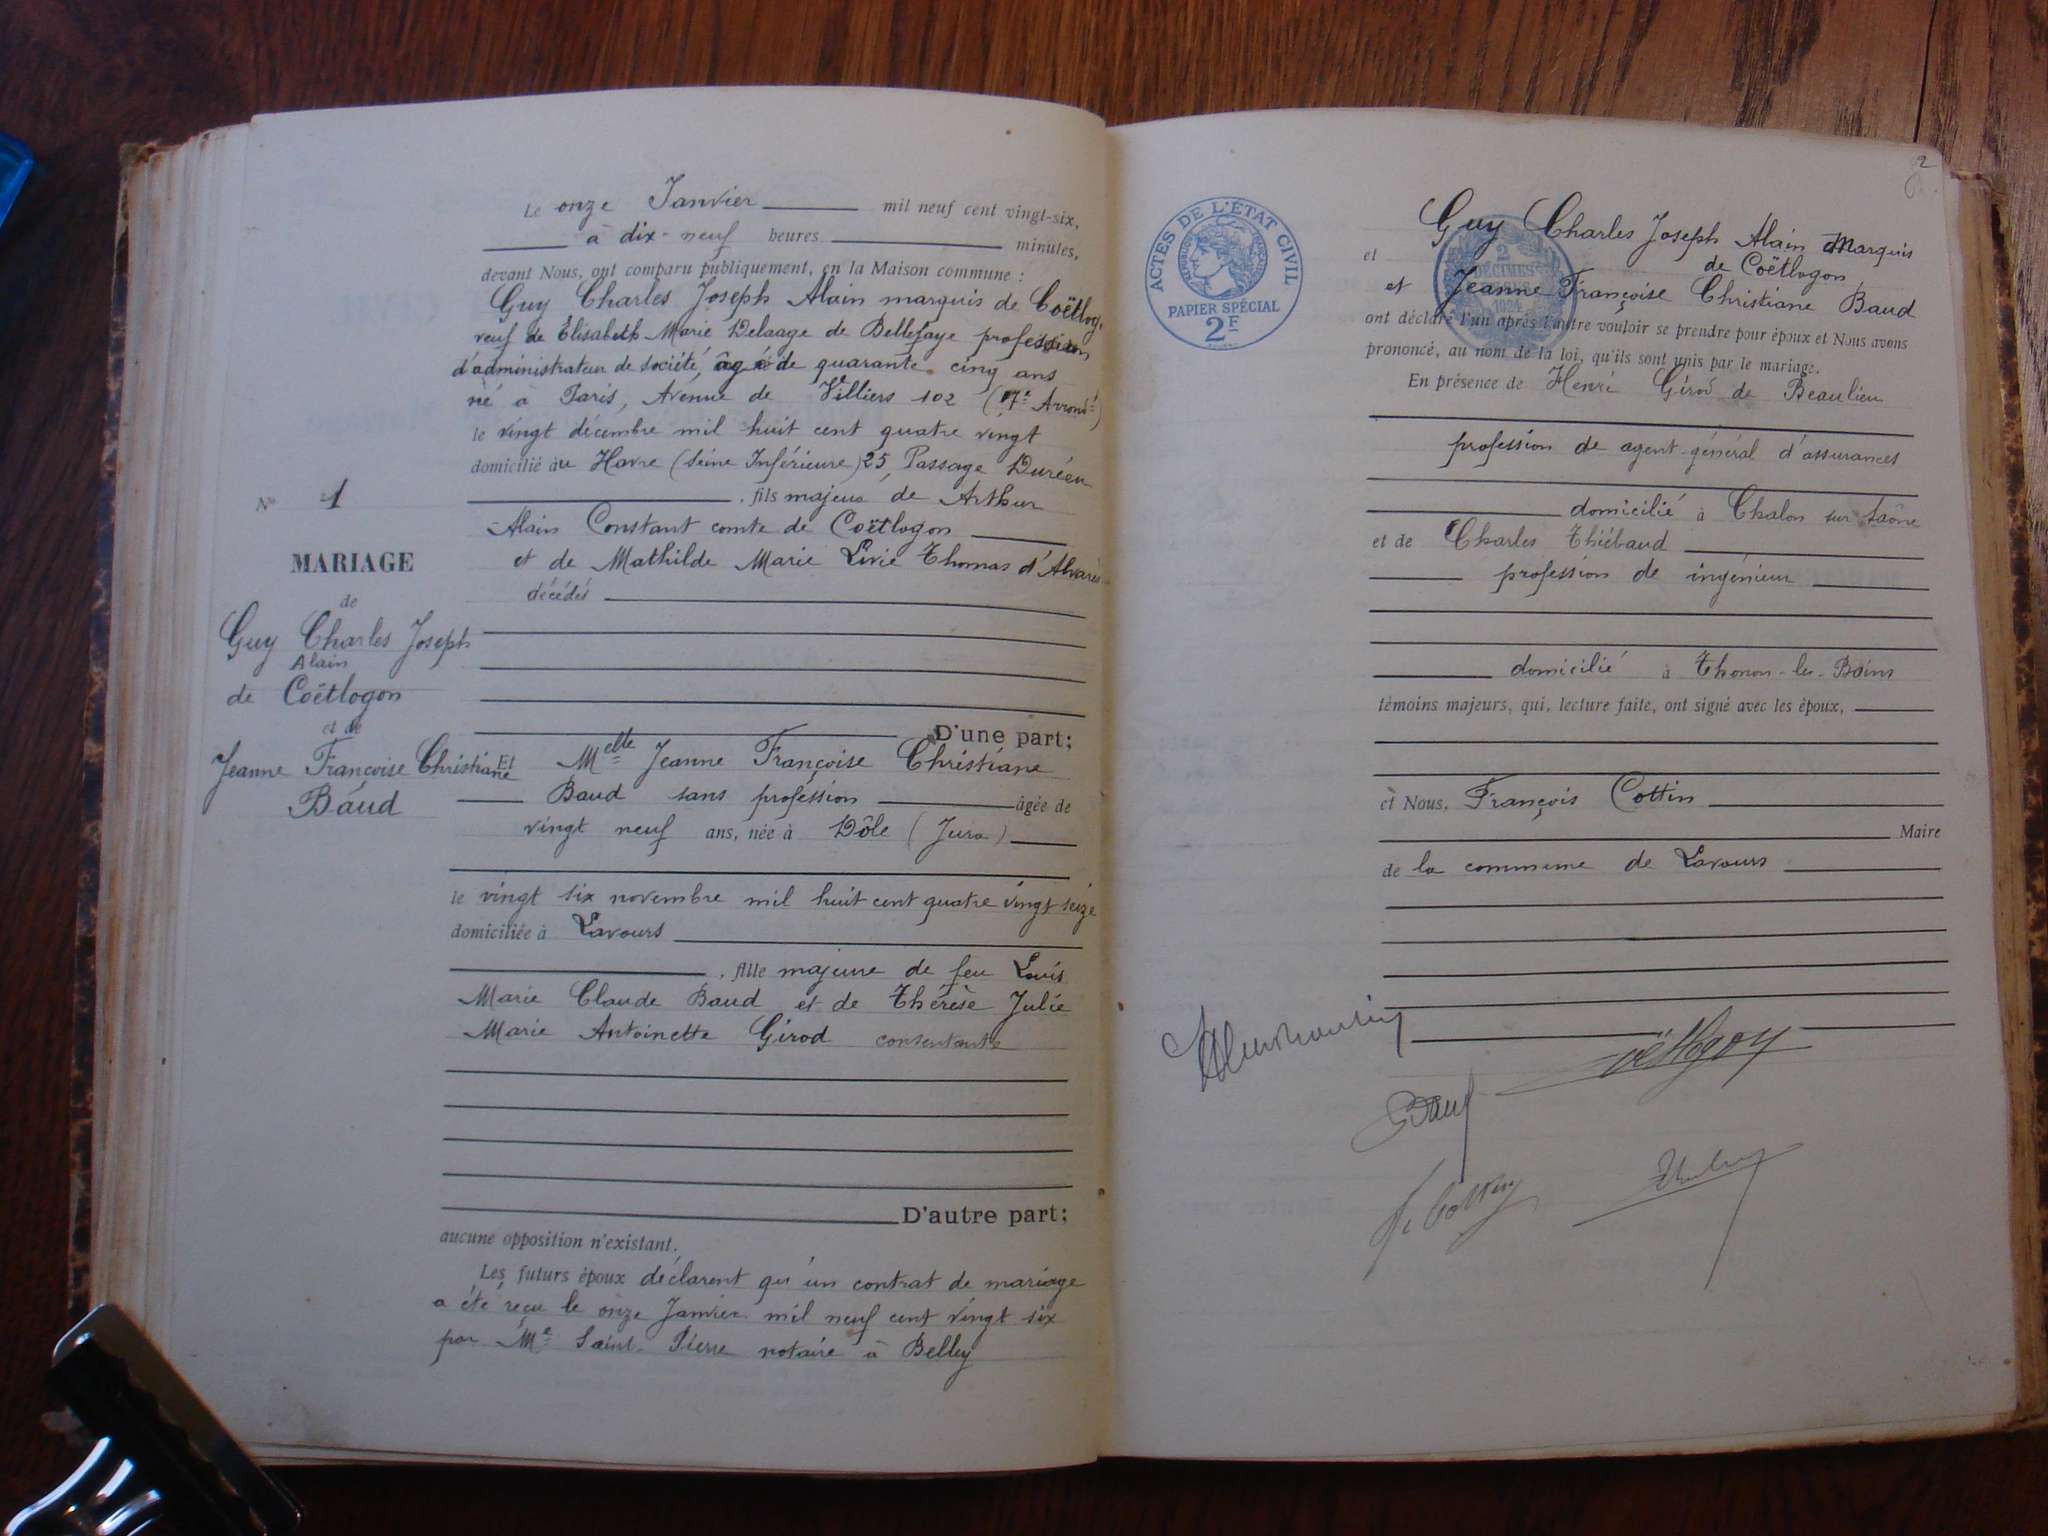 Le onze Janvier mil neuf cent vingt-six,
à dix-neuf heures minutes,
devant Nous, ont comparu publiquement, en la Maison commune :
Guy Charles Joseph Alain marquis de Coëtlog.
veuf de Elisabeth Marie Delaage de Bellefaye profession
d'administrateur de société, âgé de quarante cinq ans
né à Paris, Avenue de Villiers 102 (17e Arrondt)
le vingt décembre mil huit cent quatre vingt
domicilié au Havre (Seine Inférieure) 25, Passage
, fils majeur de Arthur
Alain Constant comte de Coëtlogon
et de Mathilde Marie Livie Thomas d'Alvarès
décédés
D'une part;
Et Melle Jeanne Françoise Christiane
Baud sans profession âgée de
vingt neuf ans, née à Dôle (Jura)
le vingt six novembre mil huit cent quatre vingt seize
domiciliée à Lavours
, fille majeure de feu Louis
Marie Claude Baud et de Thérèse Julie
Marie Antoinette Girod consentante
D'autre part;
aucune opposition n'existant.
Les futurs époux déclarent qu'un contrat de mariage
a été reçu le onze Janvier mil neuf cent vingt six
par Me Saint-Pierre notaire à Belley
No 1
MARIAGE
de
Guy Charles Joseph
Alain
de Coëtlogon
et de
Jeanne Françoise Christiane
Baud
2
ACTES DE L'ÉTAT CIVIL
PAPIER SPÉCIAL
2F
2
DÉCIMES
1924
Guy Charles Joseph Alain Marquis
et
de Coëtlogon
et Jeanne Françoise Christiane Baud
ont déclaré l'un après l'autre vouloir se prendre pour époux et Nous avons
prononcé, au nom de la loi, qu'ils sont unis par le mariage.
En présence de Henri Girod de Beaulieu
profession de agent-général d'assurances
domicilié à Chalon sur Saône
et de Charles Thiébaud
profession de ingénieur
domicilié à Thonon-les-Bains
témoins majeurs, qui, lecture faite, ont signé avec les époux,
et Nous, François Cottin
Maire
de la commune de Lavours
Coëtlogon
Baud
F. Cottin